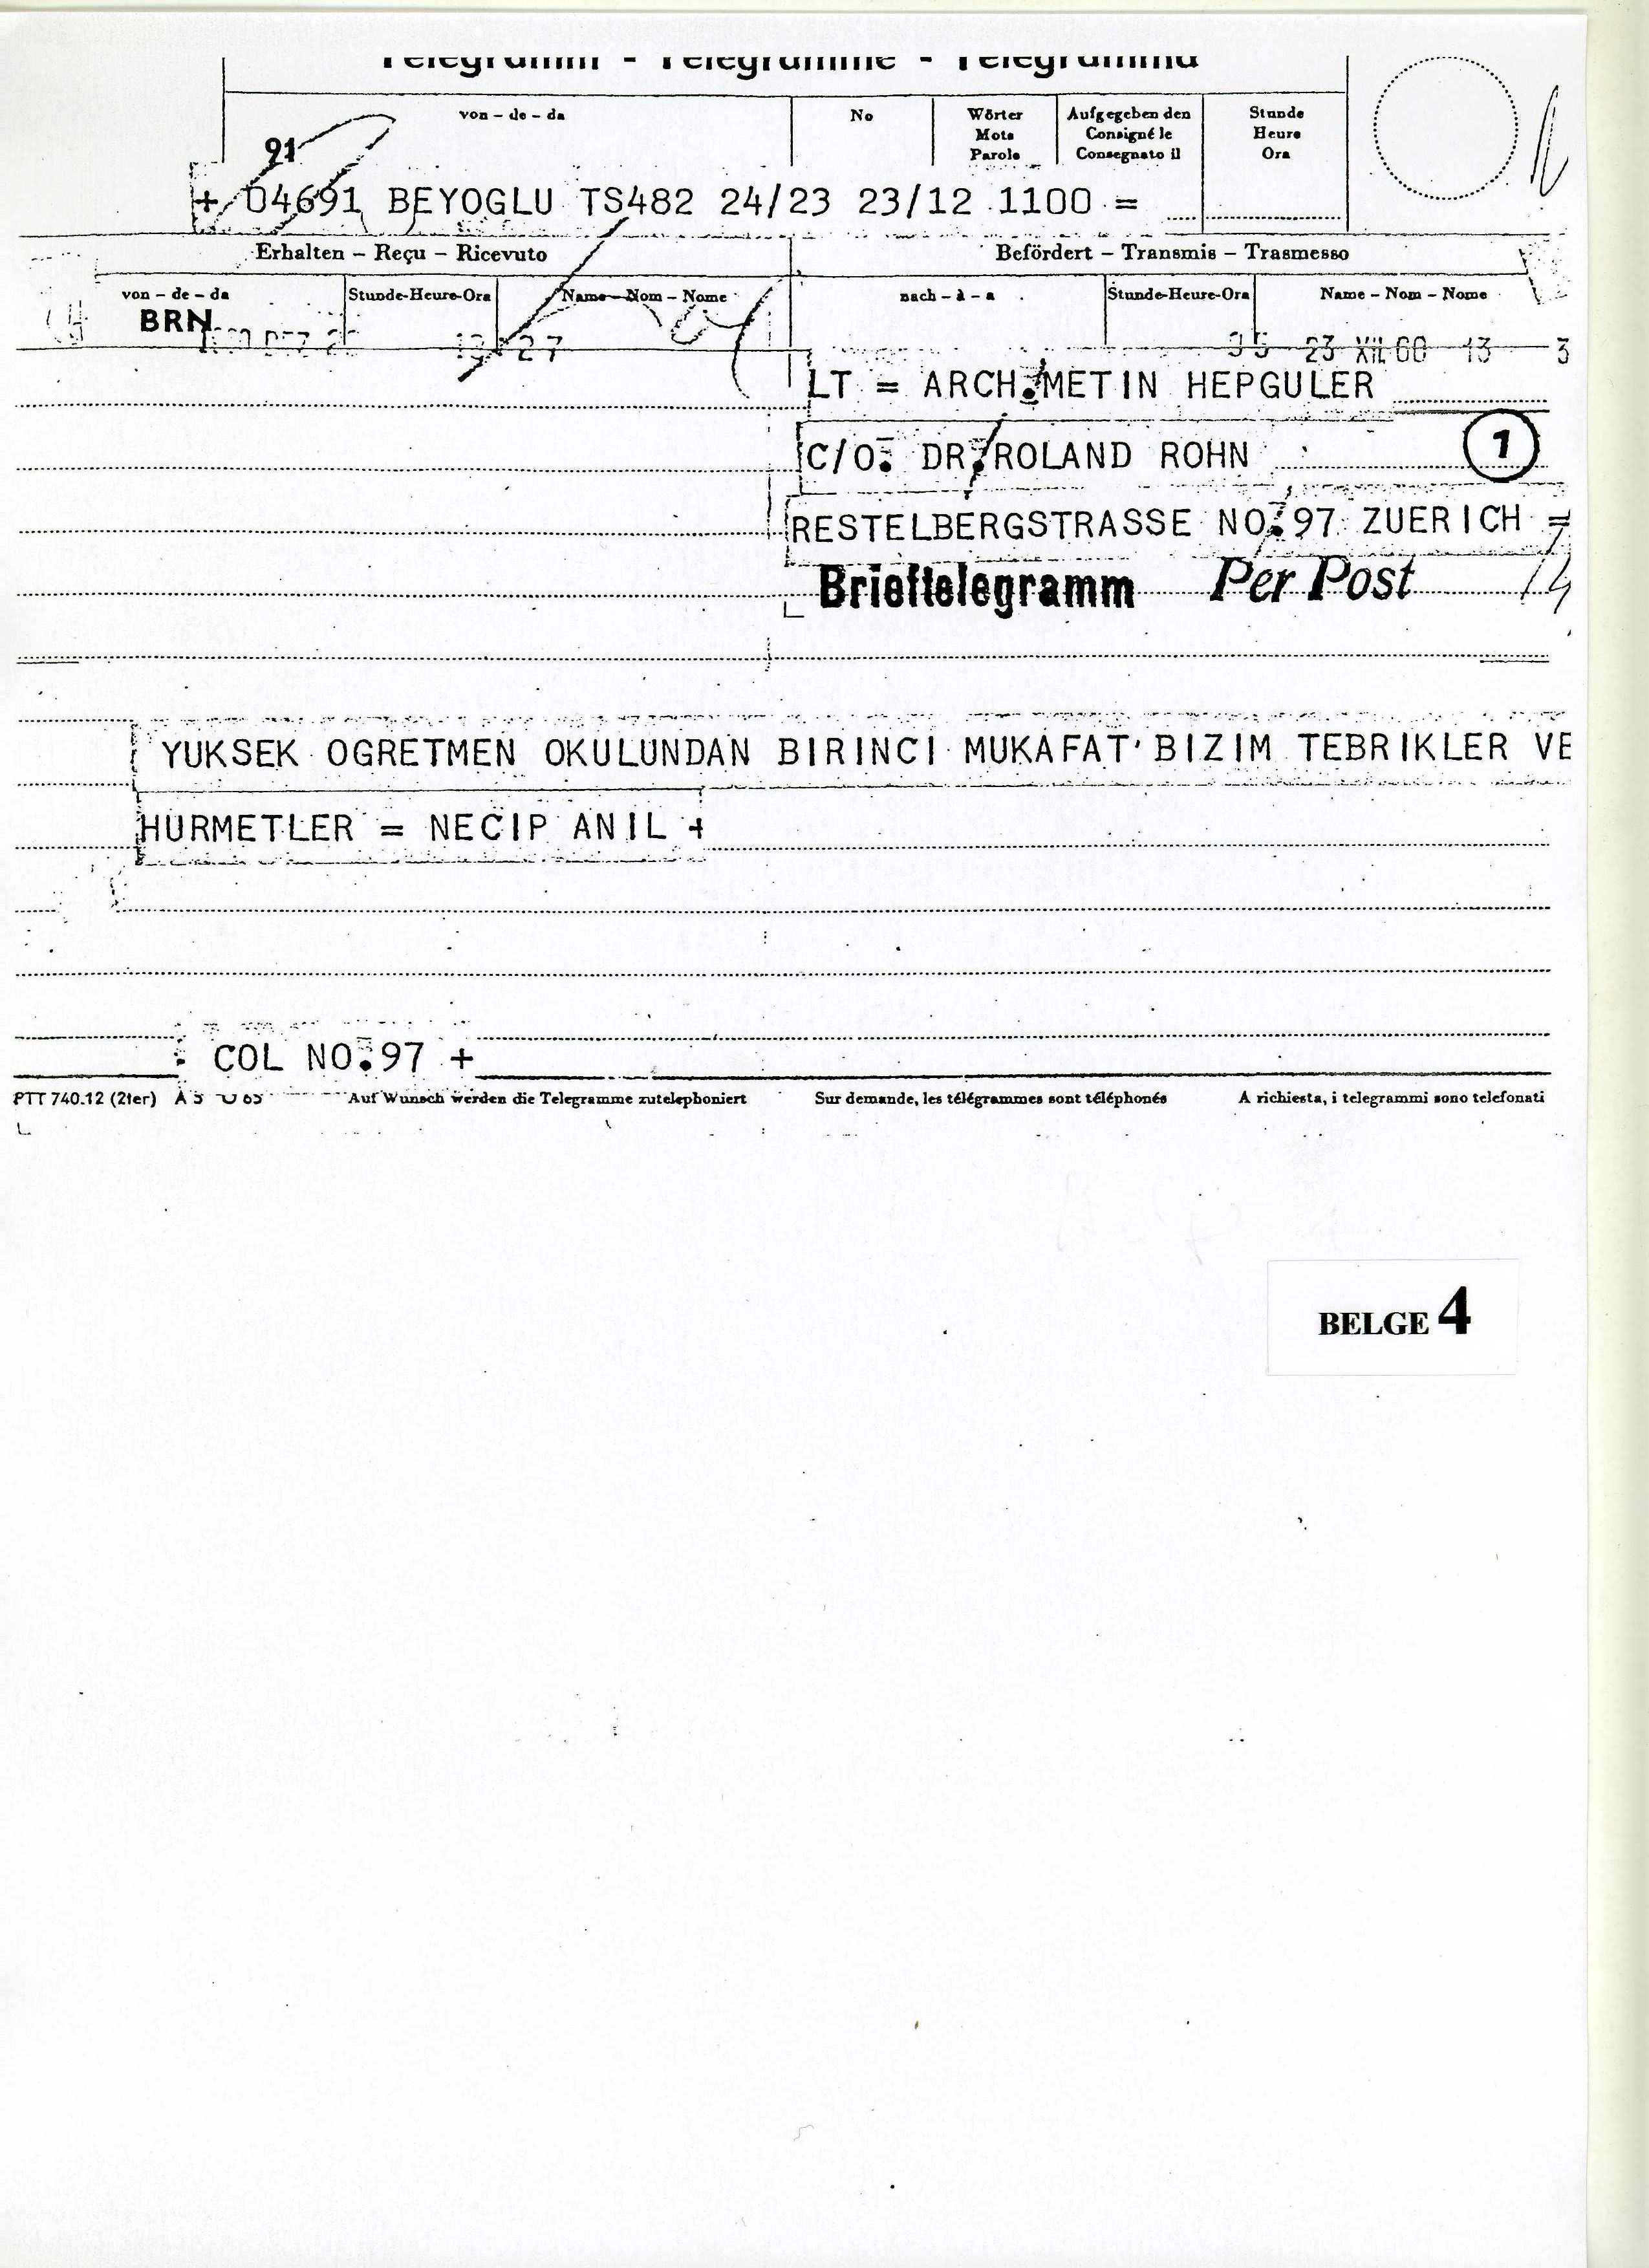 Telegramm - Telegramme - Telegramma
von – de – da No Wörter Aufgegeben den Stunde
Mots Consigné le Heure
Parole Consegnato il Ora
91
+ 04691 BEYOGLU TS482 24/23 23/12 1100 =
Erhalten – Reçu – Ricevuto Befördert – Transmis – Trasmesso
von – de – da Stunde-Heure-Ora Name – Nom – Nome nach – à – a Stunde-Heure-Ora Name – Nom – Nome
BRN
27 23 XII 60 13 3
LT = ARCH. METIN HEPGULER
C/O. DR. ROLAND ROHN 1
RESTELBERGSTRASSE NO. 97 ZUERICH =
Brieftelegramm Per Post
YUKSEK OGRETMEN OKULUNDAN BIRINCI MUKAFAT BIZIM TEBRIKLER VE
HURMETLER = NECIP ANIL +
COL NO. 97 +
PTT 740.12 (2ter) A5 Auf Wunsch werden die Telegramme zutelephoniert Sur demande, les télégrammes sont téléphonés A richiesta, i telegrammi sono telefonati
BELGE 4